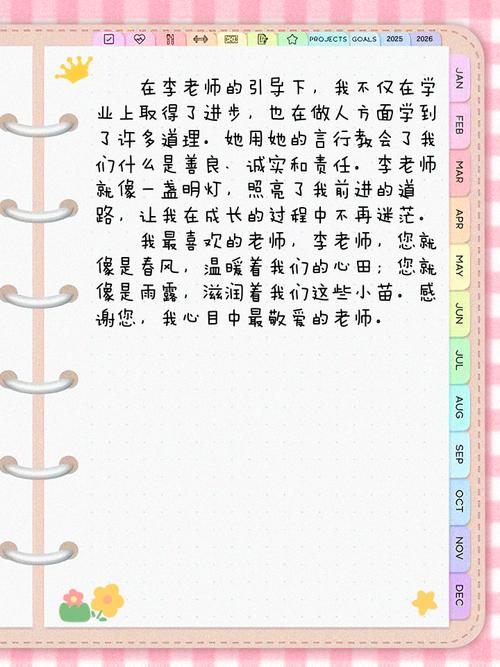 PROJECTS GOALS 2025 2026
在李老师的引导下，我不仅在学
业上取得了进步，也在做人方面学到
了许多道理。她用她的言行教会了我
们什么是善良、诚实和责任。李老师
就像一盏明灯，照亮了我前进的道
路，让我在成长的过程中不再迷茫。
我最喜欢的老师，李老师，您就
像是春风，温暖着我们的心田；您就
像是雨露，滋润着我们这些小苗。感
谢您，我心目中最敬爱的老师。
JAN
FEB
MAR
APR
MAY
JUN
JUL
AUG
SEP
OCT
NOV
DEC